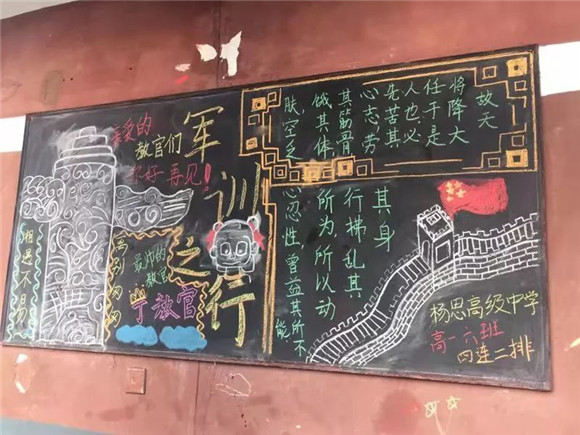 亲爱的
教官们
你好 再见!
军训之行
相遇不易
离别匆匆
最帅的
教官
教官
故天
将降大
任于是
人也必
先苦其
心志劳
其筋骨
饿其体
肤空乏
其身
行拂乱其
所为所以动
心忍性,曾益其所不能
杨思高级中学
高一六班
四连二排